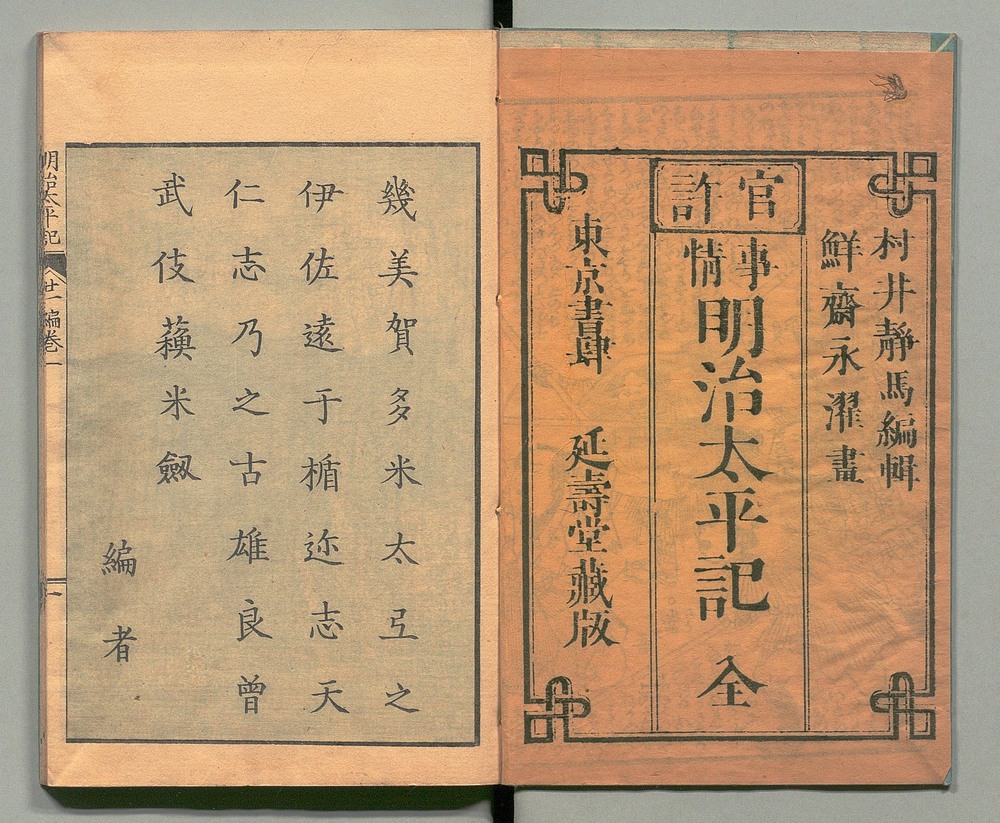 官許
村井靜馬編輯
鮮齋永濯畫
事情明治太平記 全
東京書肆 延壽堂藏版
幾美賀多米太弖之
伊佐遠于楯迩志天
仁志乃之古雄良曽
武伎蘓米劔
編者
明治太平記 廿一編卷一 一